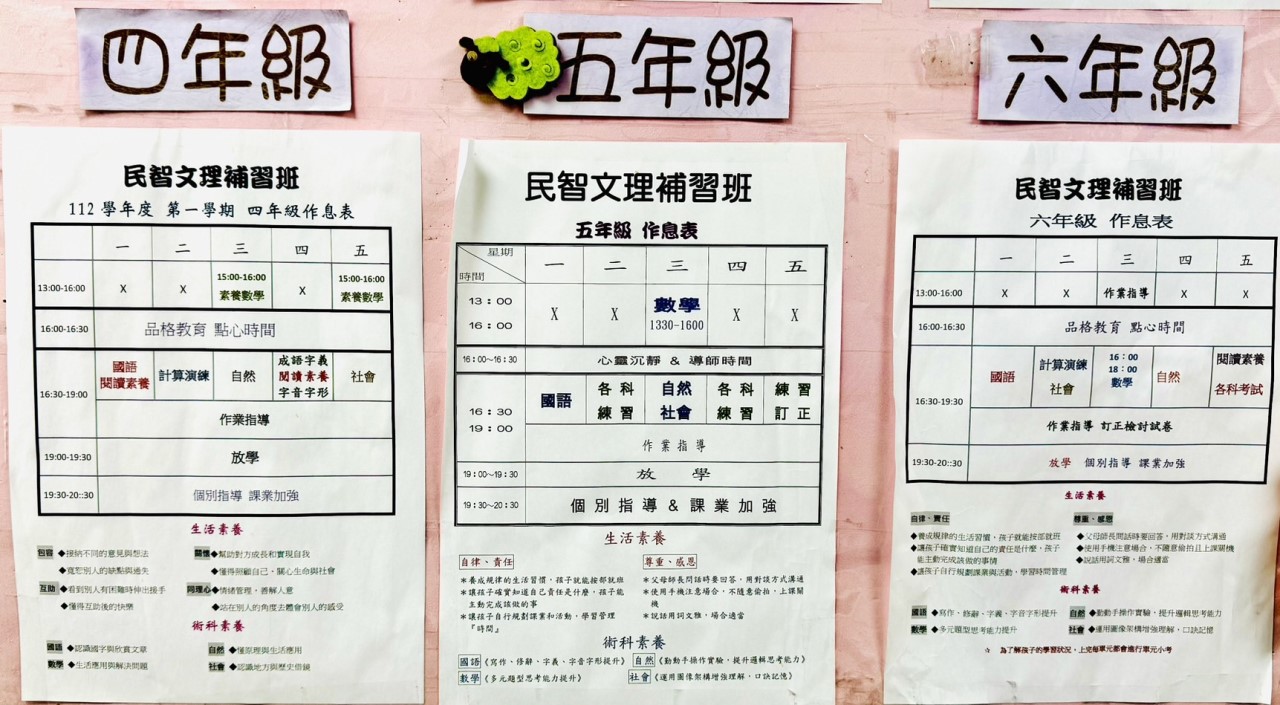 四年級
民智文理補習班
112 學年度 第一學期 四年級作息表
一 二 三 四 五
13:00-16:00 X X 15:00-16:00 素養數學 X 15:00-16:00 素養數學
16:00-16:30 品格教育 點心時間
16:30-19:00 國語 閱讀素養 計算演練 自然 成語字義 閱讀素養 字音字形 社會
作業指導
19:00-19:30 放學
19:30-20::30 個別指導 課業加強
生活素養
包容 ◆接納不同的意見與想法
◆寬恕別人的缺點與過失
關懷 ◆幫助對方成長和實現自我
◆懂得照顧自己,關心生命與社會
互助 ◆看到別人有困難時伸出援手
◆懂得互助後的快樂
同理心 ◆情緒管理,善解人意
◆站在別人的角度去體會別人的感受
術科素養
國語 ◆認識國字與欣賞文章
自然 ◆懂原理與生活應用
數學 ◆生活應用與解決問題
社會 ◆認識地方與歷史借鏡
五年級
民智文理補習班
五年級 作息表
星期
時間
一 二 三 四 五
13:00 16:00 X X 數學 1330-1600 X X
16:00~16:30 心靈沉靜 & 導師時間
16:30 19:00 國語 各科練習 自然 社會 各科練習 練習訂正
作業指導
19:00~19:30 放 學
19:30~20:30 個別指導&課業加強
生活素養
自律、責任
*養成規律的生活習慣,孩子就能按部就班
*讓孩子確實知道自己責任是什麼,孩子能
主動完成該做的事
*讓孩子自行規劃課業和活動,學習管理
『時間』
尊重、感恩
*父母師長問話時要回答,用對談方式溝通
*使用手機注意場合,不隨意偷拍,上課關
機
*說話用詞文雅,場合適當
術科素養
國語《寫作、修辭、字義、字音字形提升》
自然《勤動手操作實驗,提升邏輯思考能力》
數學《多元題型思考能力提升》
社會《運用圖像架構增強理解,口訣記憶》
六年級
民智文理補習班
六年級 作息表
一 二 三 四 五
13:00-16:00 X X 作業指導 X X
16:00-16:30 品格教育 點心時間
16:30-19:30 國語 計算演練 社會 16:00 18:00 數學 自然 閱讀素養 各科考試
作業指導 訂正檢討試卷
19:30-20:30 放學 個別指導 課業加強
生活素養
自律、責任
◆養成規律的生活習慣,孩子就能按部就班
◆讓孩子確實知道自己的責任是什麼,孩子
能主動完成該做的事情
◆讓孩子自行規劃課業與活動,學習時間管理
尊重、感恩
◆父母師長問話時要回答,用對談方式溝通
◆使用手機注意場合,不隨意偷拍且上課關機
◆說話用詞文雅,場合適當
術科素養
國語 ◆寫作、修辭、字義、字音字形提升
自然 ◆勤動手操作實驗,提升邏輯思考能力
數學 ◆多元題型思考能力提升
社會 ◆運用圖像架構增強理解,口訣記憶
☆ 為了解孩子的學習狀況,上完每單元都會進行單元小考